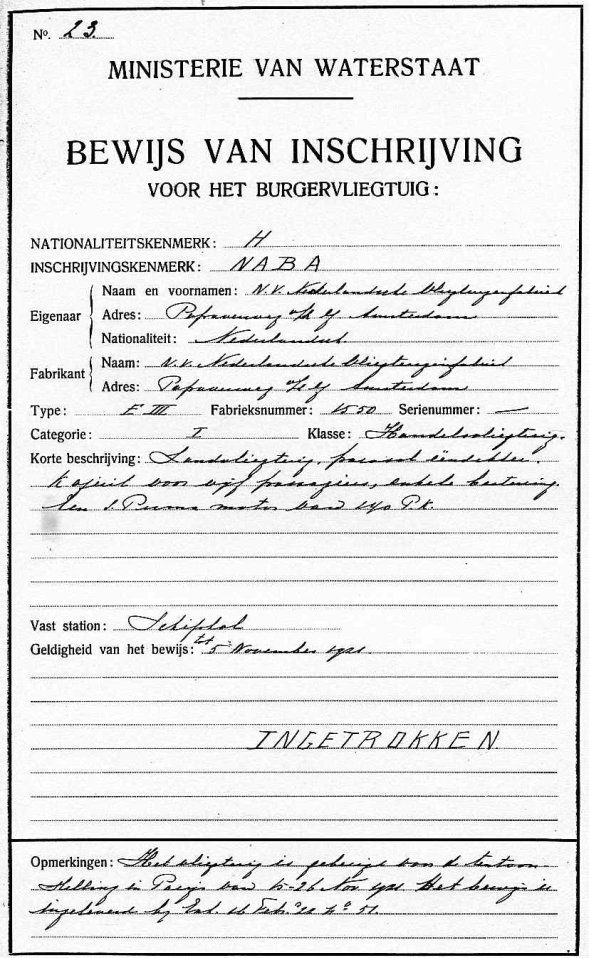 No. 23.
MINISTERIE VAN WATERSTAAT
BEWIJS VAN INSCHRIJVING
VOOR HET BURGERVLIEGTUIG:
NATIONALITEITSKENMERK: H
INSCHRIJVINGSKENMERK: NABA
Naam en voornamen: N.V. Nederlandsche Vliegtuigenfabriek
Eigenaar
Adres: Papaverweg Amsterdam
Nationaliteit: Nederlandsch
Naam: N.V. Nederlandsche Vliegtuigenfabriek
Fabrikant
Adres: Papaverweg Amsterdam
Type: F III Fabrieksnummer: 1550 Serienummer: —
Categorie: I Klasse: Handelsvliegtuig.
Korte beschrijving: Landvliegtuig, eendekker.
Kajuit voor vijf passagiers, enkele besturing.
Een S. Puma motor van 240 P.K.
Vast station: Schiphol
Geldigheid van het bewijs: tot 5 November 1921
INGETROKKEN
Opmerkingen: Het vliegtuig is voor de tentoon
stelling in Parijs van 15-26 Nov 1921 Het bewijs is
ingeleverd bij 16 Feb. 22 No 51.